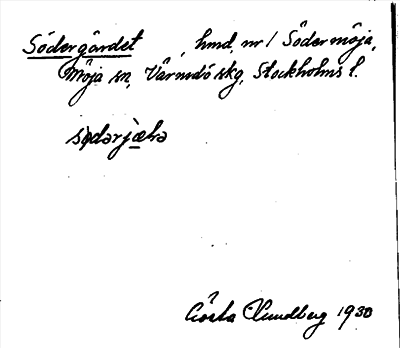 Södergärdet, hmd, nr 1 Södermöja,
Möja sn, Värmdö skg, Stockholms l.
Gösta Lundberg 1930